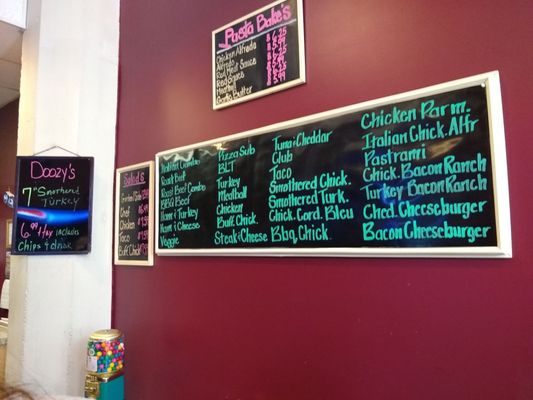 Doozy's
7" Smothered
Turkey
6.99 +tax includes
Chips & drink
Salads
Chef
Chicken
Taco
Buff. Chick
Pasta Bake's
Chicken Alfredo
Alfredo
Red Meat Sauce
Red Sauce
Meatball
Garlic Butter
Italian Combo
Roast Beef
Roast Beef Combo
BBQ Beef
Ham & Turkey
Ham & Cheese
Veggie
Pizza Sub
BLT
Turkey
Meatball
Chicken
Buff. Chick.
Steak & Cheese
Tuna & Cheddar
Club
Taco
Smothered Chick.
Smothered Turk.
Chick. Cord. Bleu
Bbq. Chick
Chicken Parm.
Italian Chick. Alfr
Pastrami
Chick. Bacon Ranch
Turkey Bacon Ranch
Ched. Cheeseburger
Bacon Cheeseburger